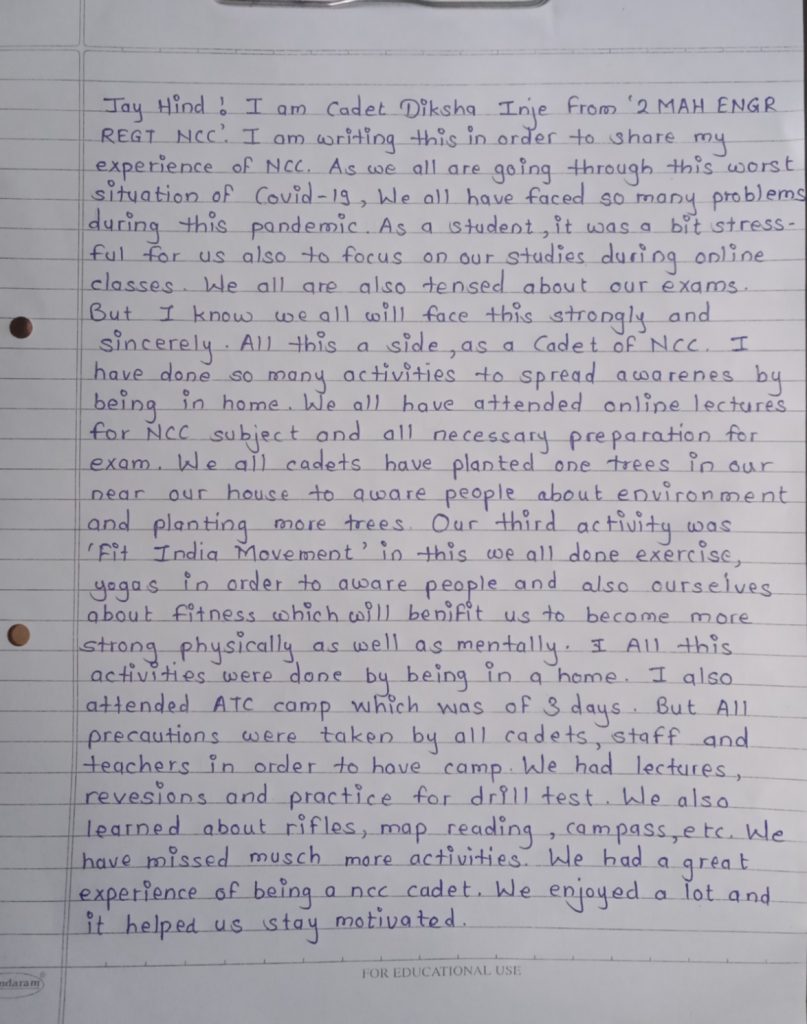 Jay Hind! I am Cadet Diksha Inje from '2 MAH ENGR
REGT NCC'. I am writing this in order to share my
experience of NCC. As we all are going through this worst
situation of Covid-19, We all have faced so many problems
during this pandemic. As a student, it was a bit stress-
ful for us also to focus on our studies during online
classes. We all are also tensed about our exams.
But I know we all will face this strongly and
sincerely. All this a side, as a Cadet of NCC. I
have done so many activities to spread awarenes by
being in home. We all have attended online lectures
for NCC subject and all necessary preparation for
exam. We all cadets have planted one trees in our
near our house to aware people about environment
and planting more trees. Our third activity was
'Fit India Movement' in this we all done exercise,
yogas in order to aware people and also ourselves
about fitness which will benifit us to become more
strong physically as well as mentally. I All this
activities were done by being in a home. I also
attended ATC camp which was of 3 days. But All
precautions were taken by all cadets, staff and
teachers in order to have camp. We had lectures,
revesions and practice for drill test. We also
learned about rifles, map reading, campass, etc. We
have missed musch more activities. We had a great
experience of being a ncc cadet. We enjoyed a lot and
it helped us stay motivated.
FOR EDUCATIONAL USE
ndaram